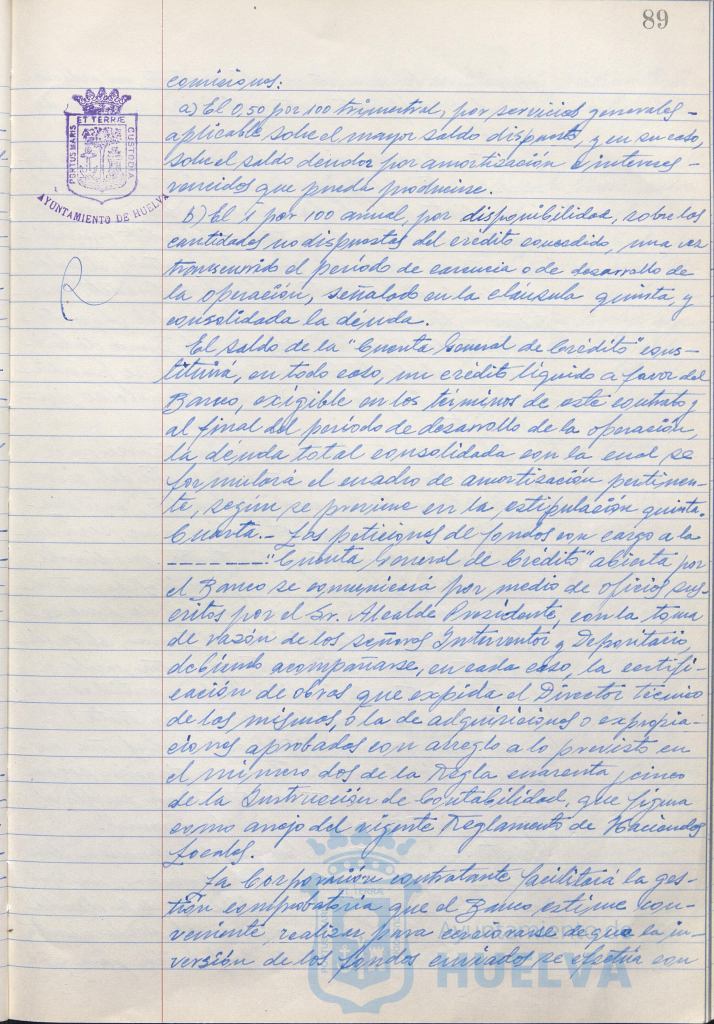 89
comisiones:
a) El 0,50 por 100 trimestral, por servicios generales-
aplicable sobre el mayor saldo dispuesto, y en su caso,
sobre el saldo deudor por amortización e intereses-
vencidos que pueda producirse.
b) El 1 por 100 anual, por disponibilidad, sobre las
cantidades no dispuestas del crédito concedido, una vez
transcurrido el período de carencia o de desarrollo de
la operación, señalado en la cláusula quinta, y
consolidada la deuda.
El saldo de la "Cuenta General de Crédito" cons-
tituirá, en todo caso, un crédito líquido a favor del
Banco, exigible en los términos de este contrato y
al final del período de desarrollo de la operación,
la deuda total consolidada con la cual se
formulará el cuadro de amortización pertinen-
te, según se previene en la estipulación quinta.
Cuarta.- Las peticiones de fondos con cargo a la
-------: "Cuenta General de Crédito" abierta por
el Banco se comunicará por medio de oficios sus-
critos por el Sr. Alcalde Presidente, con la toma
de razón de los señores Interventor y Depositario,
debiendo acompañarse, en cada caso, la certifi-
cación de obras que expida el Director técnico
de las mismas, o la de adquisiciones o expropia-
ciones aprobadas con arreglo a lo previsto en
el número dos de la Regla cuarenta y cinco
de la Instrucción de Contabilidad, que figura
como anejo del vigente Reglamento de Haciendas
Locales.
La Corporación contratante facilitará la ges-
tión comprobatoria que el Banco estime con-
veniente realizar para cerciorarse de que la in-
versión de los fondos enviados se efectúa con
PORTUS MARIS
ET TERRÆ
CUSTODIA
AYUNTAMIENTO DE HUELVA
HUELVA